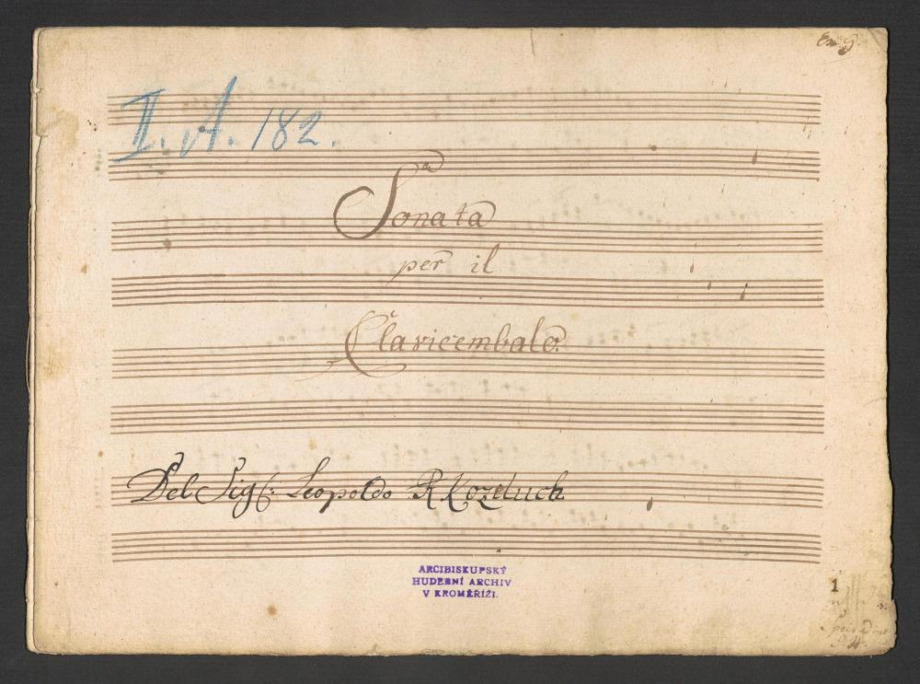 II. A. 182.
Sonata
per il
Clavicembalo.
Del Sigr: Leopoldo Kozeluch
ARCIBISKUPSKÝ
HUDEBNÍ ARCHIV
V KROMĚŘÍŽI.
1